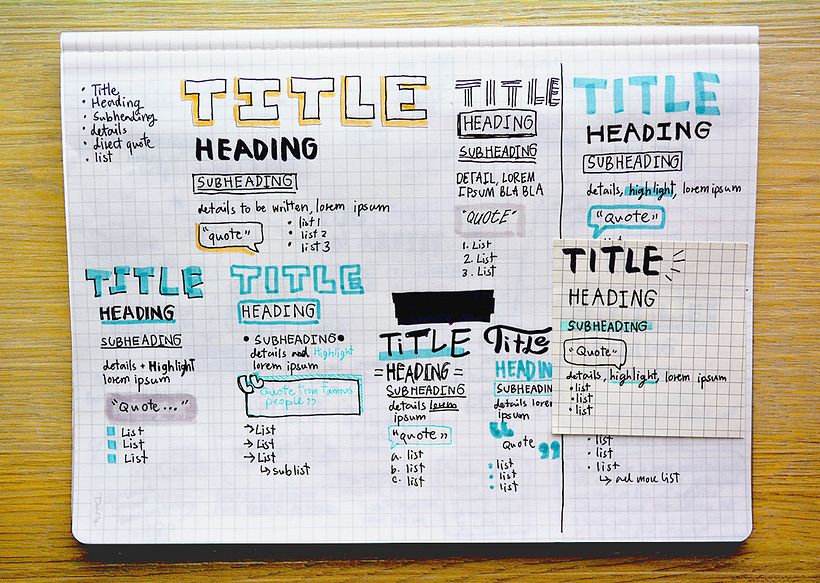 • Title
• Heading
• Subheading
• details
• direct quote
• list
TITLE
HEADING
SUBHEADING
details to be written, lorem ipsum
"quote"
• list 1
• list 2
• list 3
TITLE
HEADING
SUBHEADING
DETAIL, LOREM
IPSUM BLA BLA
"QUOTE"
1. List
2. List
3. List
TITLE
HEADING
SUBHEADING
details, highlight, lorem ipsum
"Quote"
TITLE
HEADING
SUBHEADING
details + Highlight
lorem ipsum
"Quote..."
List
List
List
TITLE
HEADING
• SUBHEADING •
details and Highlight
lorem ipsum
"Quote from famous
people"
→ List
→ List
→ List
↳ sublist
TITLE
=HEADING=
SUBHEADING
details lorem
ipsum
"Quote"
a. list
b. list
c. list
Title
HEADIN
SUBHEADIN
details lorem
ipsum
"Quote"
• list
• list
• list
TITLE
HEADING
SUBHEADING
"Quote"
details, highlight, lorem ipsum
• list
• list
• list
• list
• list
• list
↳ add more list